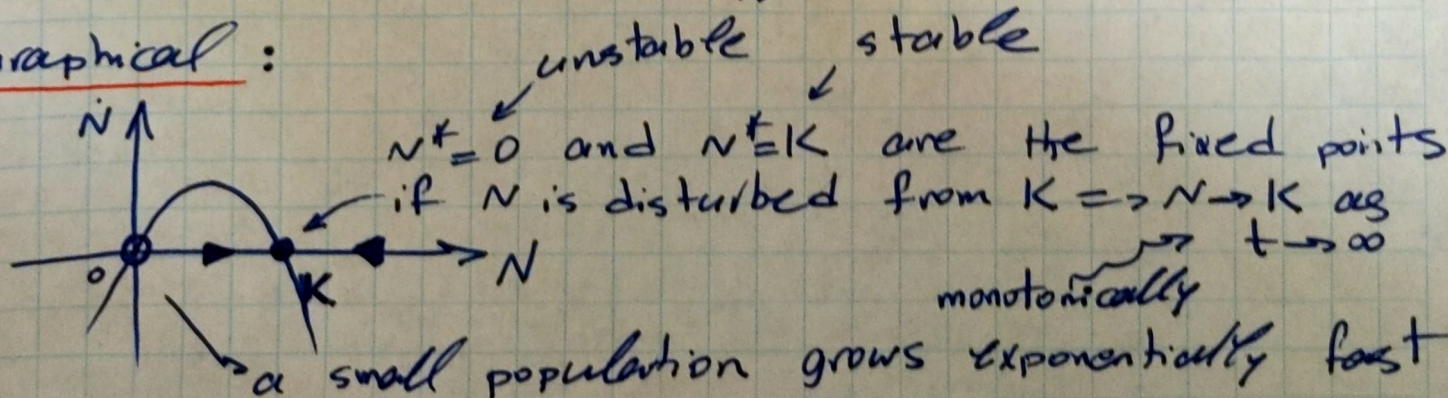 raphical :
unstable stable
Ṅ
N*=0 and N*=K are the fixed points
if N is disturbed from K => N→K as
t→∞
0 K N
monotonically
a small population grows exponentially fast